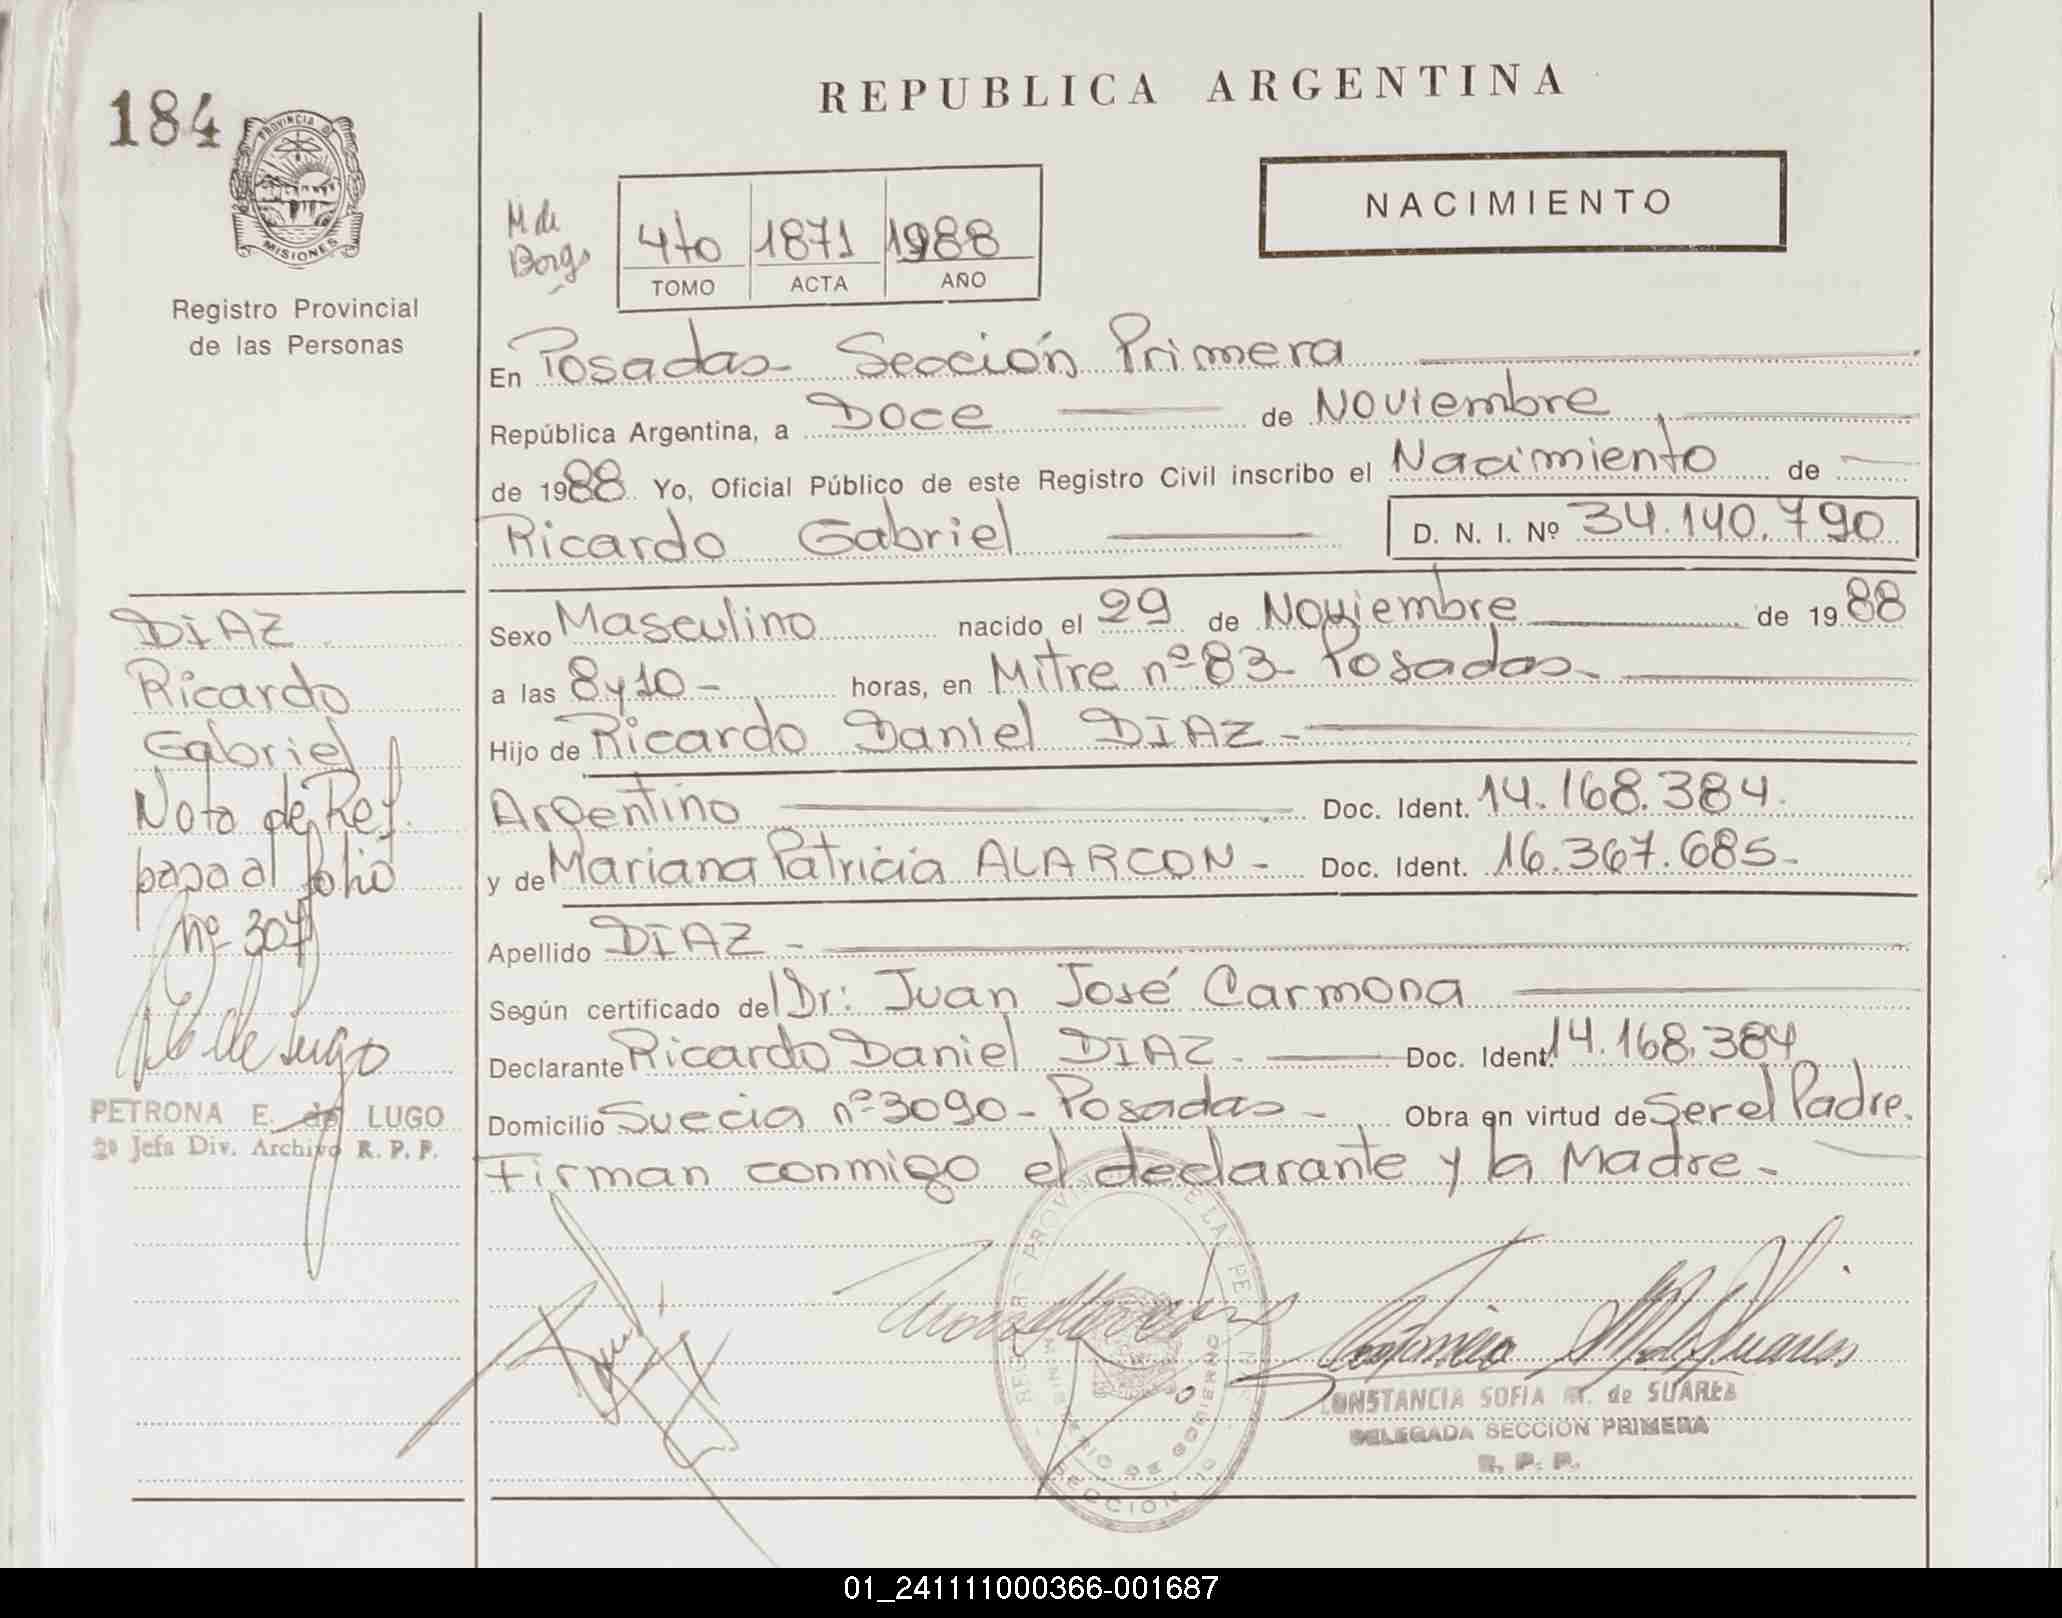 184
PROVINCIA D
MISIONES
Registro Provincial
de las Personas
REPUBLICA ARGENTINA
NACIMIENTO
M de
Borgs
4to 1871 1988
TOMO ACTA AÑO
En Posadas Sección Primera
República Argentina, a Doce de Noviembre
de 1988 Yo, Oficial Público de este Registro Civil inscribo el Nacimiento de
Ricardo Gabriel D. N. I. Nº 34.140.790
Sexo Masculino nacido el 29 de Noviembre de 1988
a las 8 y 10 - horas, en Mitre nº 83 - Posadas -
Hijo de Ricardo Daniel DIAZ -
Argentino Doc. Ident. 14.168.384.
y de Mariana Patricia ALARCON - Doc. Ident. 16.367.685-
Apellido DIAZ -
Según certificado del Dr: Juan José Carmona
Declarante Ricardo Daniel DIAZ - Doc. Ident. 14.168.384
Domicilio Suecia nº 3090 - Posadas - Obra en virtud de Ser el Padre.
Firman conmigo el declarante y la Madre -
DIAZ
Ricardo
Gabriel
Nota de Ref.
pasa al folio
nº 307
de Lugo
PETRONA E. de LUGO
2º Jefa Div. Archivo R. P. P.
CONSTANCIA SOFIA M. de SUAREZ
DELEGADA SECCION PRIMERA
R. P. P.
01_241111000366-001687